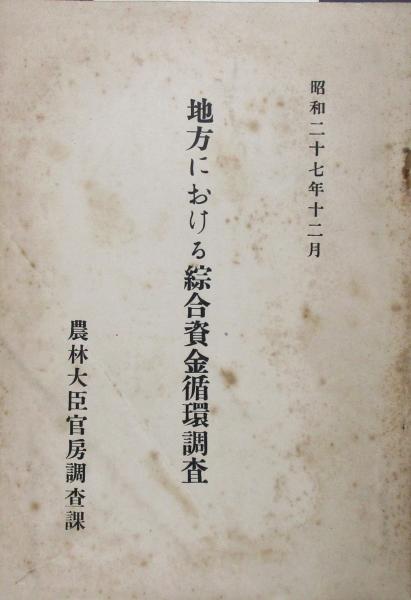 昭和二十七年十二月
地方における綜合資金循環調査
農林大臣官房調査課